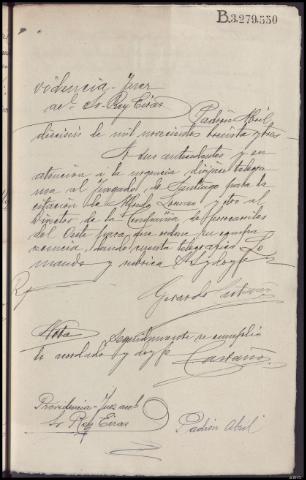 B.3.279.550
Providencia-Juez
acl. Sr. Rey Eiras
Padrón Abril
dieciseis de mil novecientos treinta y tres
A sus antecedentes y en
atención a la urgencia dirijase telegra
ma al Juzgado de Santiago para la
citación de Alfredo y otro al
Director de la Compañía de ferrocarriles
del Oeste para que ordene su
cencia, dando cuenta telegrafica. Lo
manda y rubrica S.Sª y doy fe
Gerardo
Nota Seguidamente se cumplió
lo acordado y doy fe
Castaño
Providencia-Juez acl
Sr Rey Eiras
Padrón Abril